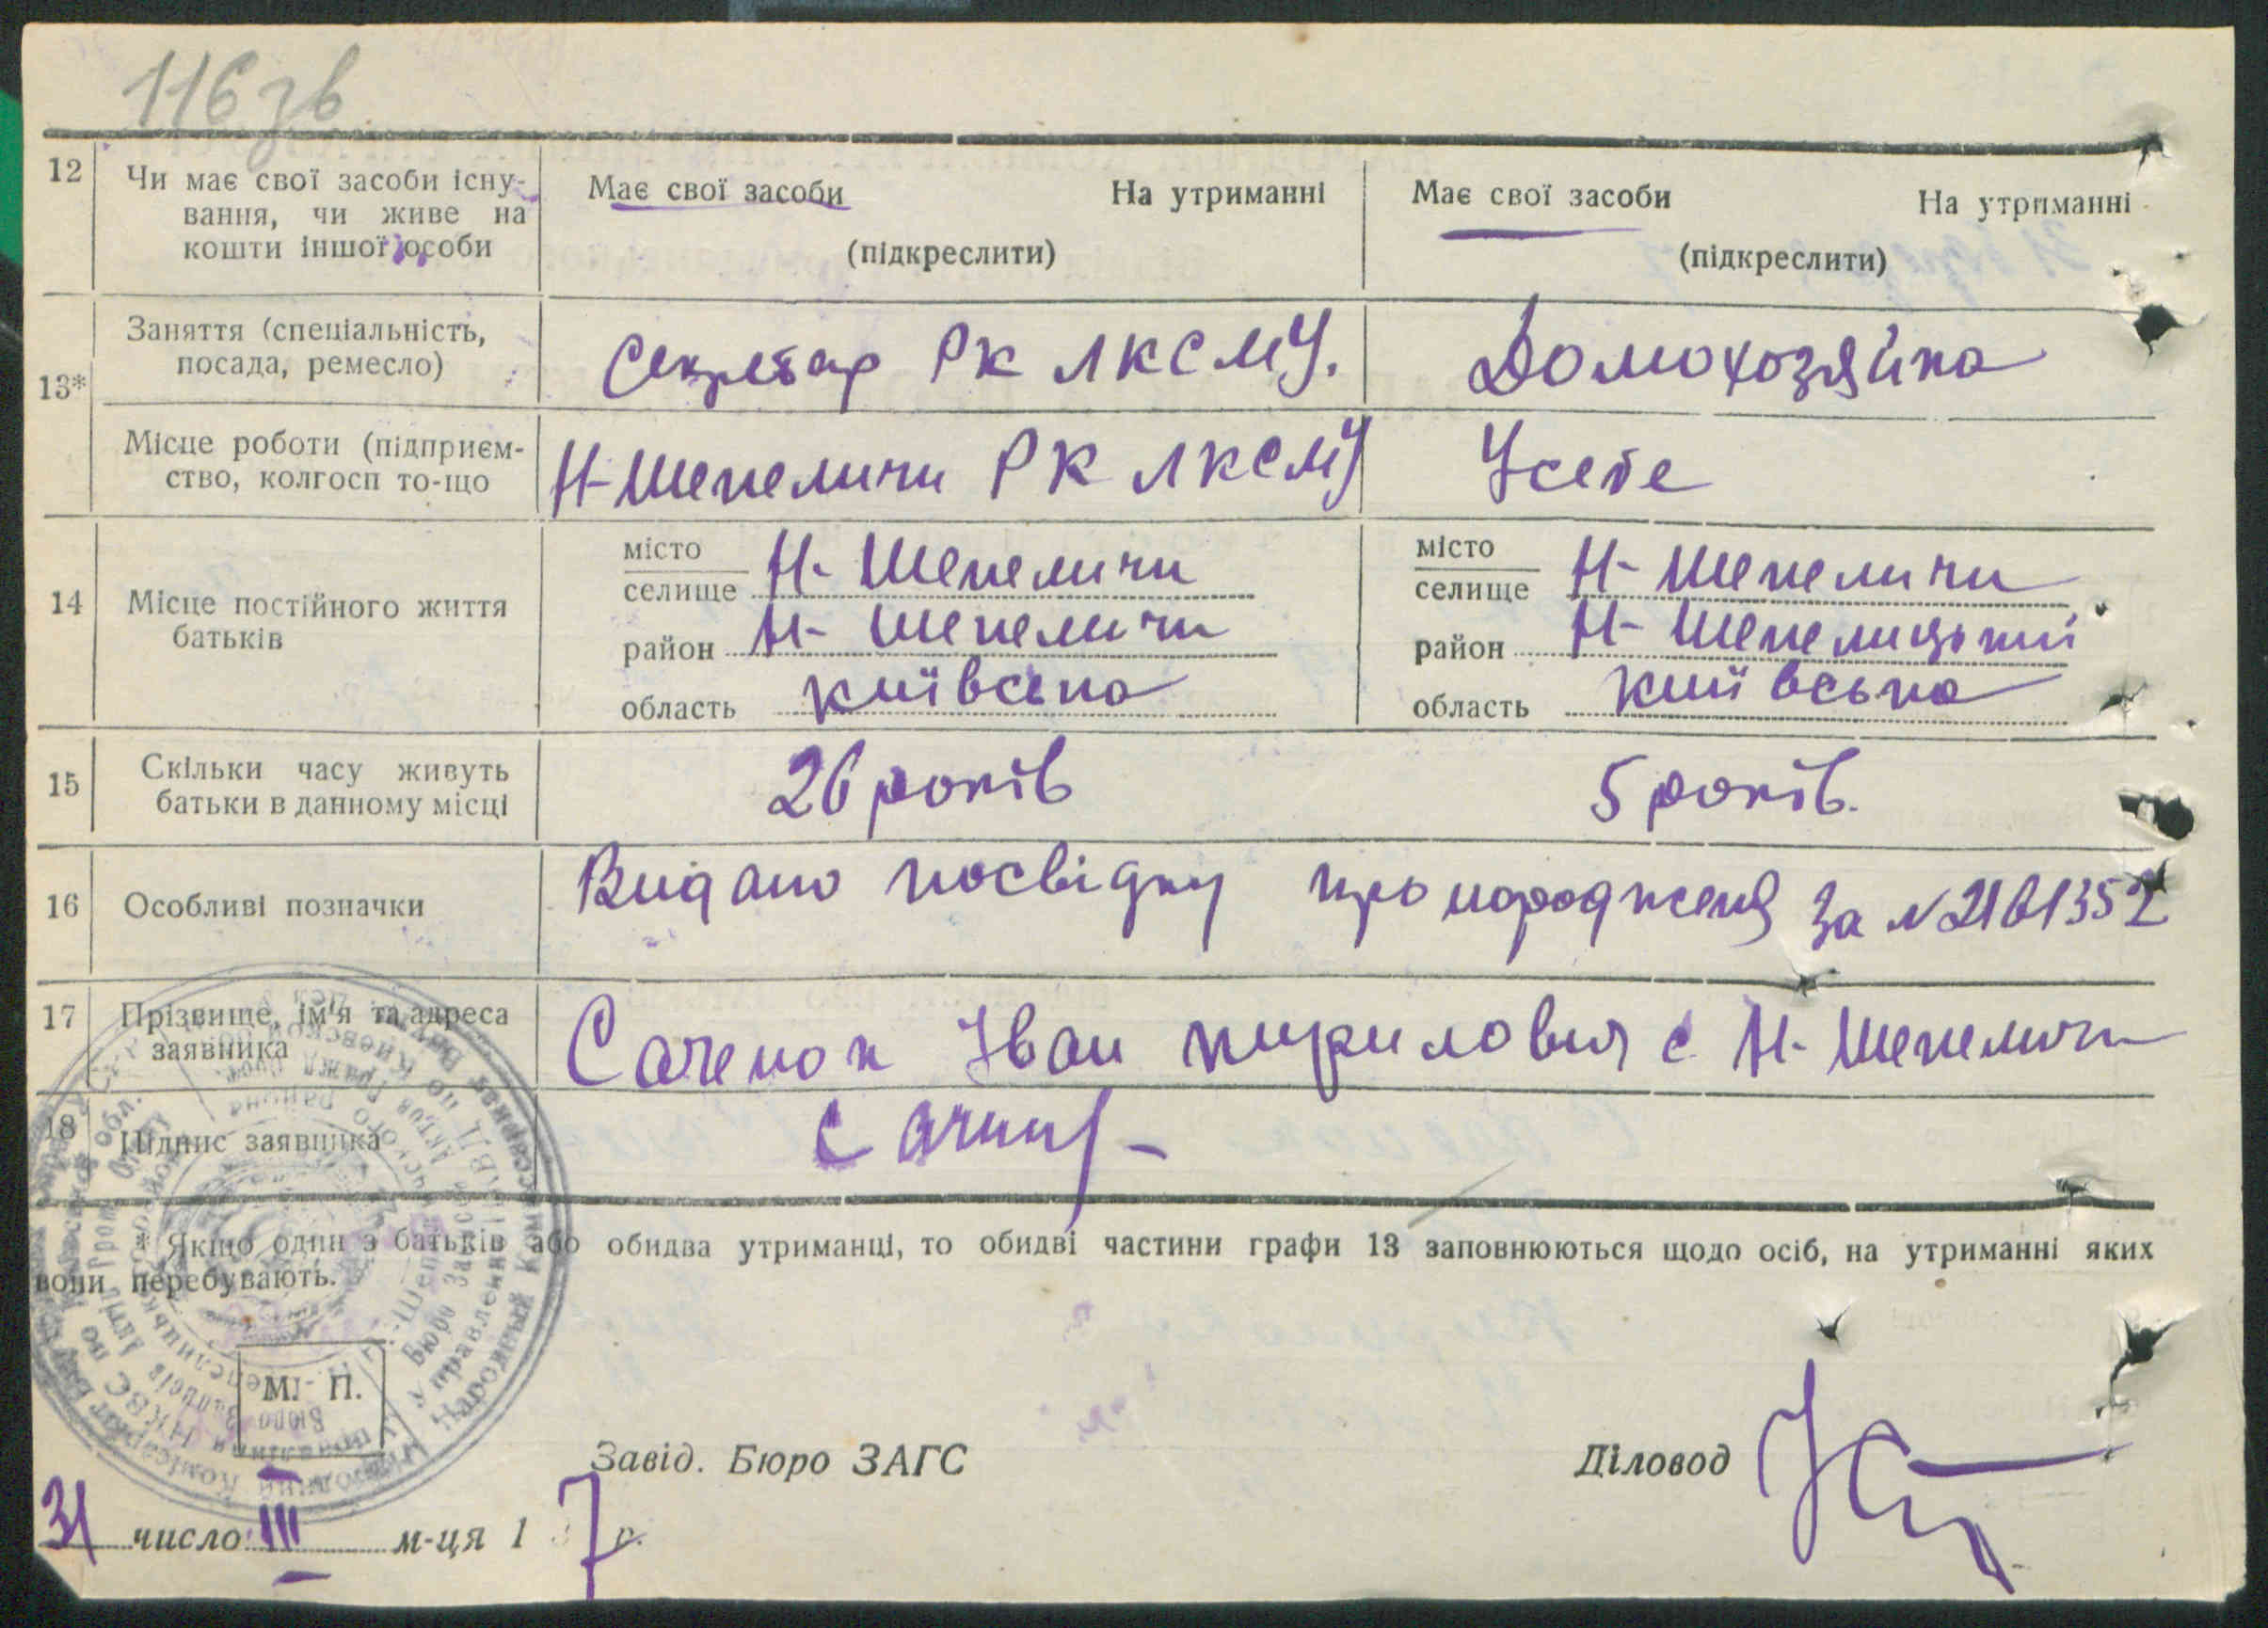 116 зв
12 Чи має свої засоби існу- Має свої засоби На утриманні Має свої засоби На утриманні
вання, чи живе на
кошти іншої особи (підкреслити) (підкреслити)
Заняття (спеціальність, Секретар РК ЛКСМУ. Домохозяйка
посада, ремесло)
13*
Місце роботи (підприєм- Н-Шепеличи РК ЛКСМУ У себе
ство, колгосп то-що
місто Н- Шепеличи місто Н- Шепеличи
селище селище
14 Місце постійного життя район Н- Шепеличи район Н- Шепелицький
батьків
область київська область київська
15 Скільки часу живуть 26 років 5 років.
батьки в данному місці
16 Особливі позначки Видано посвідку про народження за №
17 Прізвище, ім'я та адреса Саченок Іван Кирилович с. Н- Шепеличи
заявника
18 Підпис заявника
* Якщо один з батьків або обидва утриманці, то обидві частини графи 13 заповнюються щодо осіб, на утриманні яких
вони перебувають.
М. П.
Завід. Бюро ЗАГС Діловод
31 число III м-ця 1 7 р.